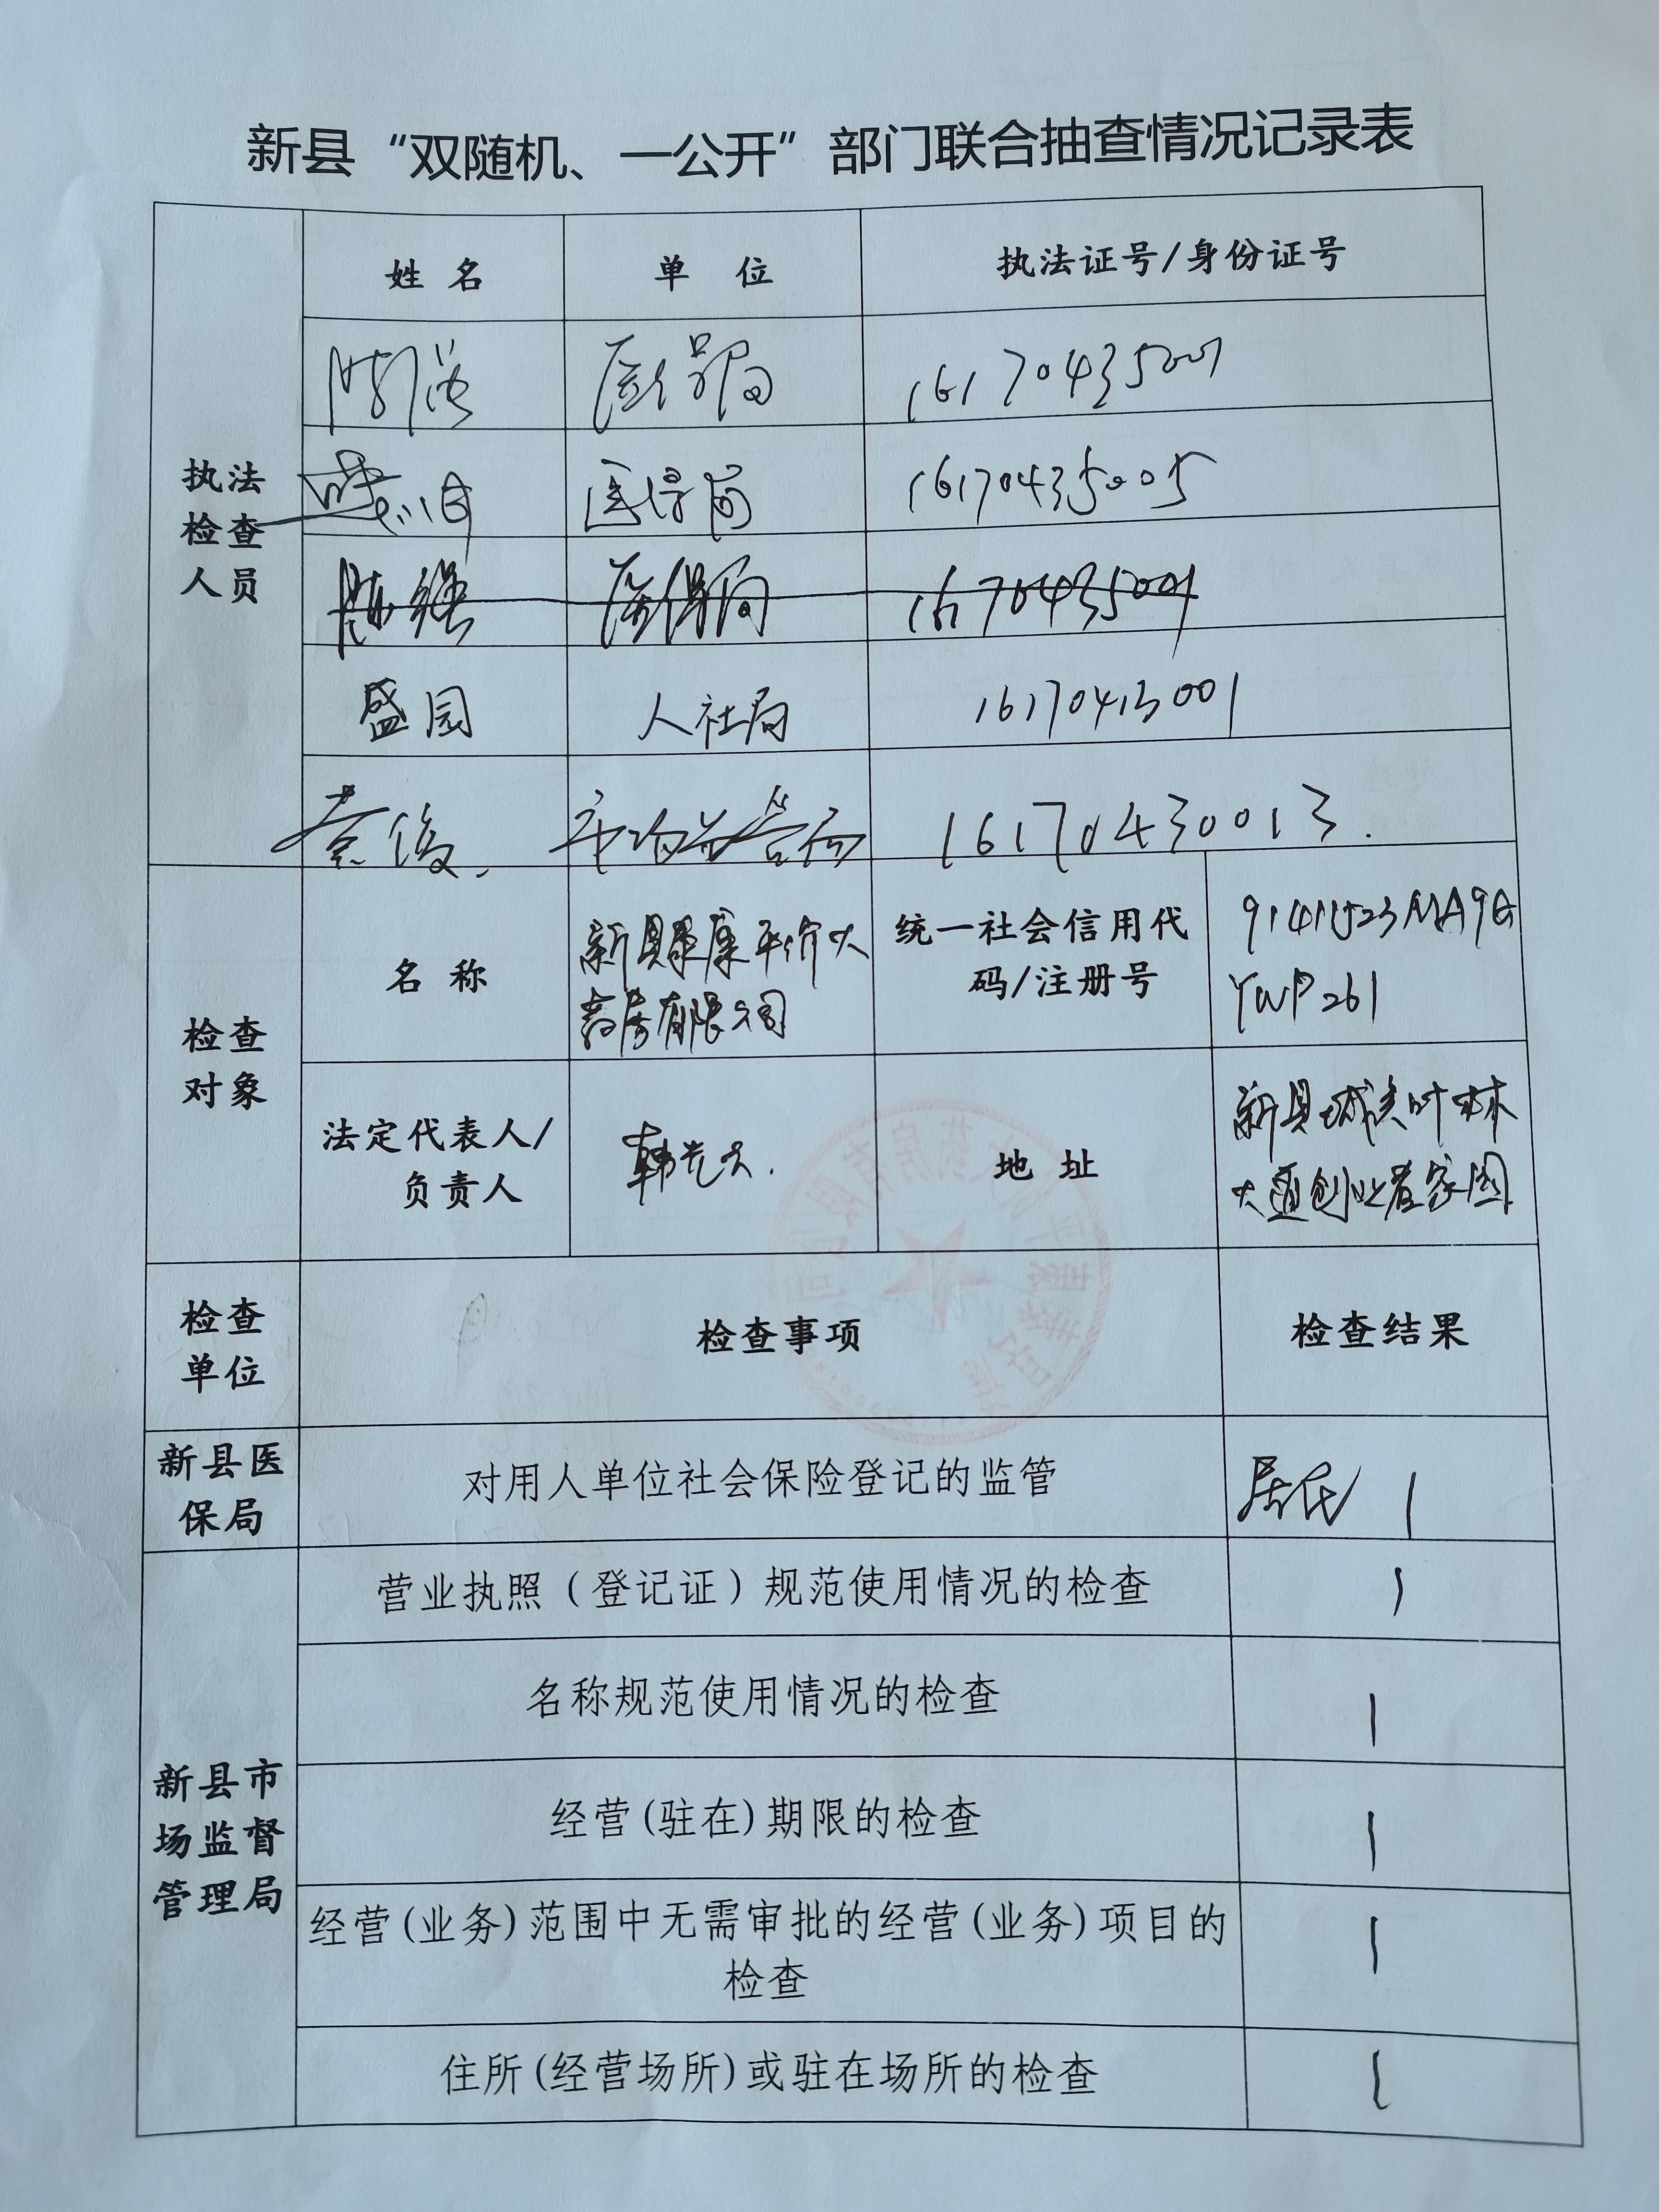 新县“双随机、一公开”部门联合抽查情况记录表
姓 名
单 位
执法证号/身份证号
执法
检查
人员
医保局
16170435001
医保局
16170435005
医保局
盛园
人社局
16170413001
秦俊
市场监管局
16170430013.
检查
对象
名 称
新县康康平价大
药房有限公司
统一社会信用代
码/注册号
91411523MA9G
YWP261
法定代表人/
负责人
地 址
新县城关叶林
大道创业者家园
检查
单位
检查事项
检查结果
新县医
保局
对用人单位社会保险登记的监管
居民 1
新县市
场监督
管理局
营业执照（登记证）规范使用情况的检查
1
名称规范使用情况的检查
1
经营(驻在)期限的检查
1
经营(业务)范围中无需审批的经营(业务)项目的
检查
1
住所(经营场所)或驻在场所的检查
1